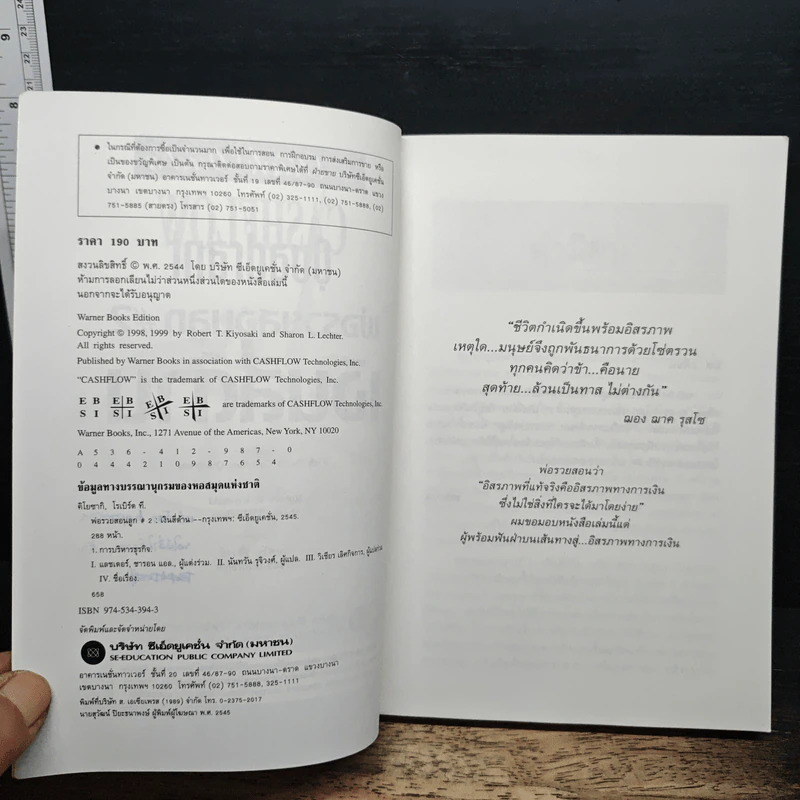 • ในกรณีที่ต้องการซื้อเป็นจำนวนมาก เพื่อใช้ในการสอน การฝึกอบรม การส่งเสริมการขาย หรือ
เป็นของขวัญพิเศษ เป็นต้น กรุณาติดต่อสอบถามราคาพิเศษได้ที่ ฝ่ายขาย บริษัทซีเอ็ดยูเคชั่น
จำกัด (มหาชน) อาคารเนชั่นทาวเวอร์ ชั้นที่ 19 เลขที่ 46/87-90 ถนนบางนา-ตราด แขวง
บางนา เขตบางนา กรุงเทพฯ 10260 โทรศัพท์ (02) 325-1111, (02) 751-5888, (02)
751-5885 (สายตรง) โทรสาร (02) 751-5051
ราคา 190 บาท
สงวนลิขสิทธิ์ © พ.ศ. 2544 โดย บริษัท ซีเอ็ดยูเคชั่น จำกัด (มหาชน)
ห้ามการลอกเลียนไม่ว่าส่วนหนึ่งส่วนใดของหนังสือเล่มนี้
นอกจากจะได้รับอนุญาต
Warner Books Edition
Copyright © 1998, 1999 by Robert T. Kiyosaki and Sharon L. Lechter.
All rights reserved.
Published by Warner Books in association with CASHFLOW Technologies, Inc.
"CASHFLOW" is the trademark of CASHFLOW Technologies, Inc.
E B E B E B E B
S I S I S I S I are trademarks of CASHFLOW Technologies, Inc.
Warner Books, Inc., 1271 Avenue of the Americas, New York, NY 10020
A 5 3 6 - 4 1 2 - 9 8 7 - 0
0 4 4 4 2 1 0 9 8 7 6 5 4
ข้อมูลทางบรรณานุกรมของหอสมุดแห่งชาติ
คิโยซากิ, โรเบิร์ต ที.
พ่อรวยสอนลูก # 2 : เงินสี่ด้าน--กรุงเทพฯ: ซีเอ็ดยูเคชั่น, 2545.
288 หน้า.
1. การบริหารธุรกิจ.
I. แลชเตอร์, ชารอน แอล., ผู้แต่งร่วม. II. นันทวัน รุจิวงศ์, ผู้แปล. III. วิเชียร เลิศกิจการ, ผู้แปลร่วม
IV. ชื่อเรื่อง.
658
ISBN 974-534-394-3
จัดพิมพ์และจัดจำหน่ายโดย
บริษัท ซีเอ็ดยูเคชั่น จำกัด (มหาชน)
SE-EDUCATION PUBLIC COMPANY LIMITED
อาคารเนชั่นทาวเวอร์ ชั้นที่ 20 เลขที่ 46/87-90 ถนนบางนา-ตราด แขวงบางนา
เขตบางนา กรุงเทพฯ 10260 โทรศัพท์ (02) 751-5888, 325-1111
พิมพ์ที่บริษัท ส. เอเซียเพรส (1989) จำกัด โทร. 0-2375-2017
นายสุวัฒน์ ปิยะธนาพงษ์ ผู้พิมพ์ผู้โฆษณา พ.ศ. 2545
"ชีวิตกำเนิดขึ้นพร้อมอิสรภาพ
เหตุใด...มนุษย์จึงถูกพันธนาการด้วยโซ่ตรวน
ทุกคนคิดว่าข้า...คือนาย
สุดท้าย...ล้วนเป็นทาส ไม่ต่างกัน"
ฌอง ฌาค รุสโซ
พ่อรวยสอนว่า
"อิสรภาพที่แท้จริงคืออิสรภาพทางการเงิน
ซึ่งไม่ใช่สิ่งที่ใครจะได้มาโดยง่าย"
ผมขอมอบหนังสือเล่มนี้แด่
ผู้พร้อมฟันฝ่าบนเส้นทางสู่...อิสรภาพทางการเงิน